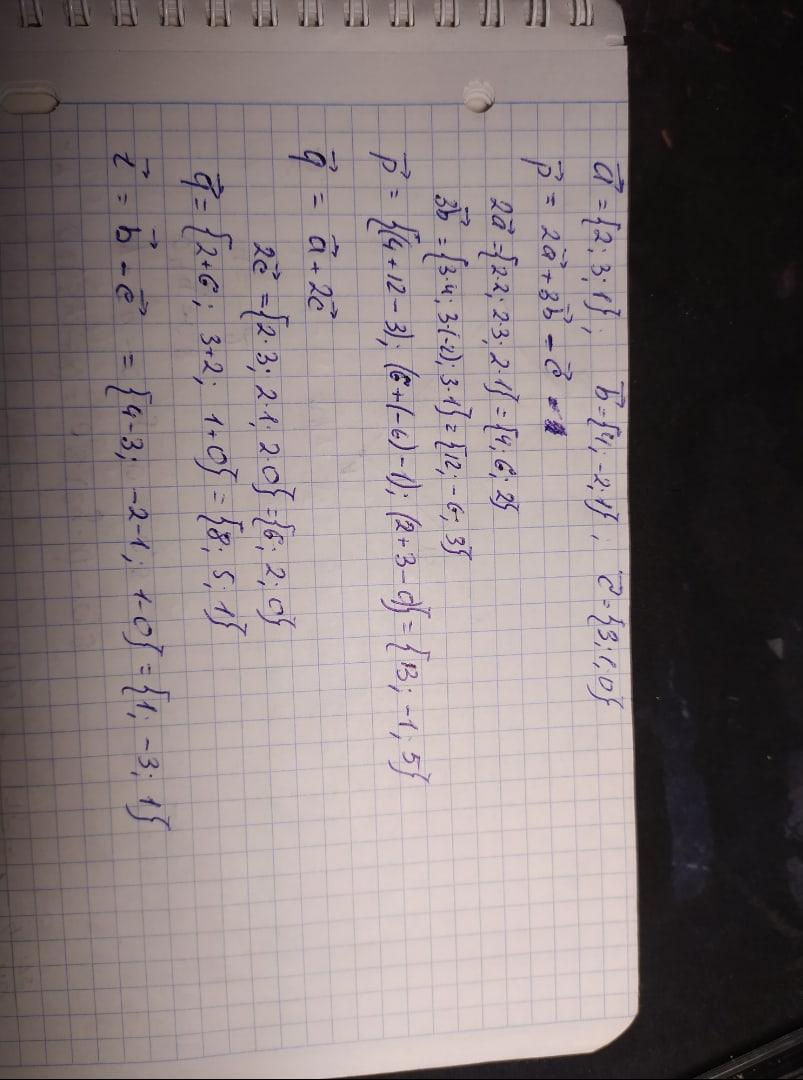 a⃗ = {2; 3; 1}; b⃗ = {4; -2; 1}; c⃗ = {3; 1; 0}
p⃗ = 2a⃗ + 3b⃗ - c⃗
2a⃗ = {2·2; 2·3; 2·1} = {4; 6; 2}
3b⃗ = {3·4; 3·(-2); 3·1} = {12; -6; 3}
p⃗ = {(4+12-3); (6+(-6)-1); (2+3-0)} = {13; -1; 5}
q⃗ = a⃗ + 2c⃗
2c⃗ = {2·3; 2·1; 2·0} = {6; 2; 0}
q⃗ = {2+6; 3+2; 1+0} = {8; 5; 1}
r⃗ = b⃗ - c⃗ = {4-3; -2-1; 1-0} = {1; -3; 1}